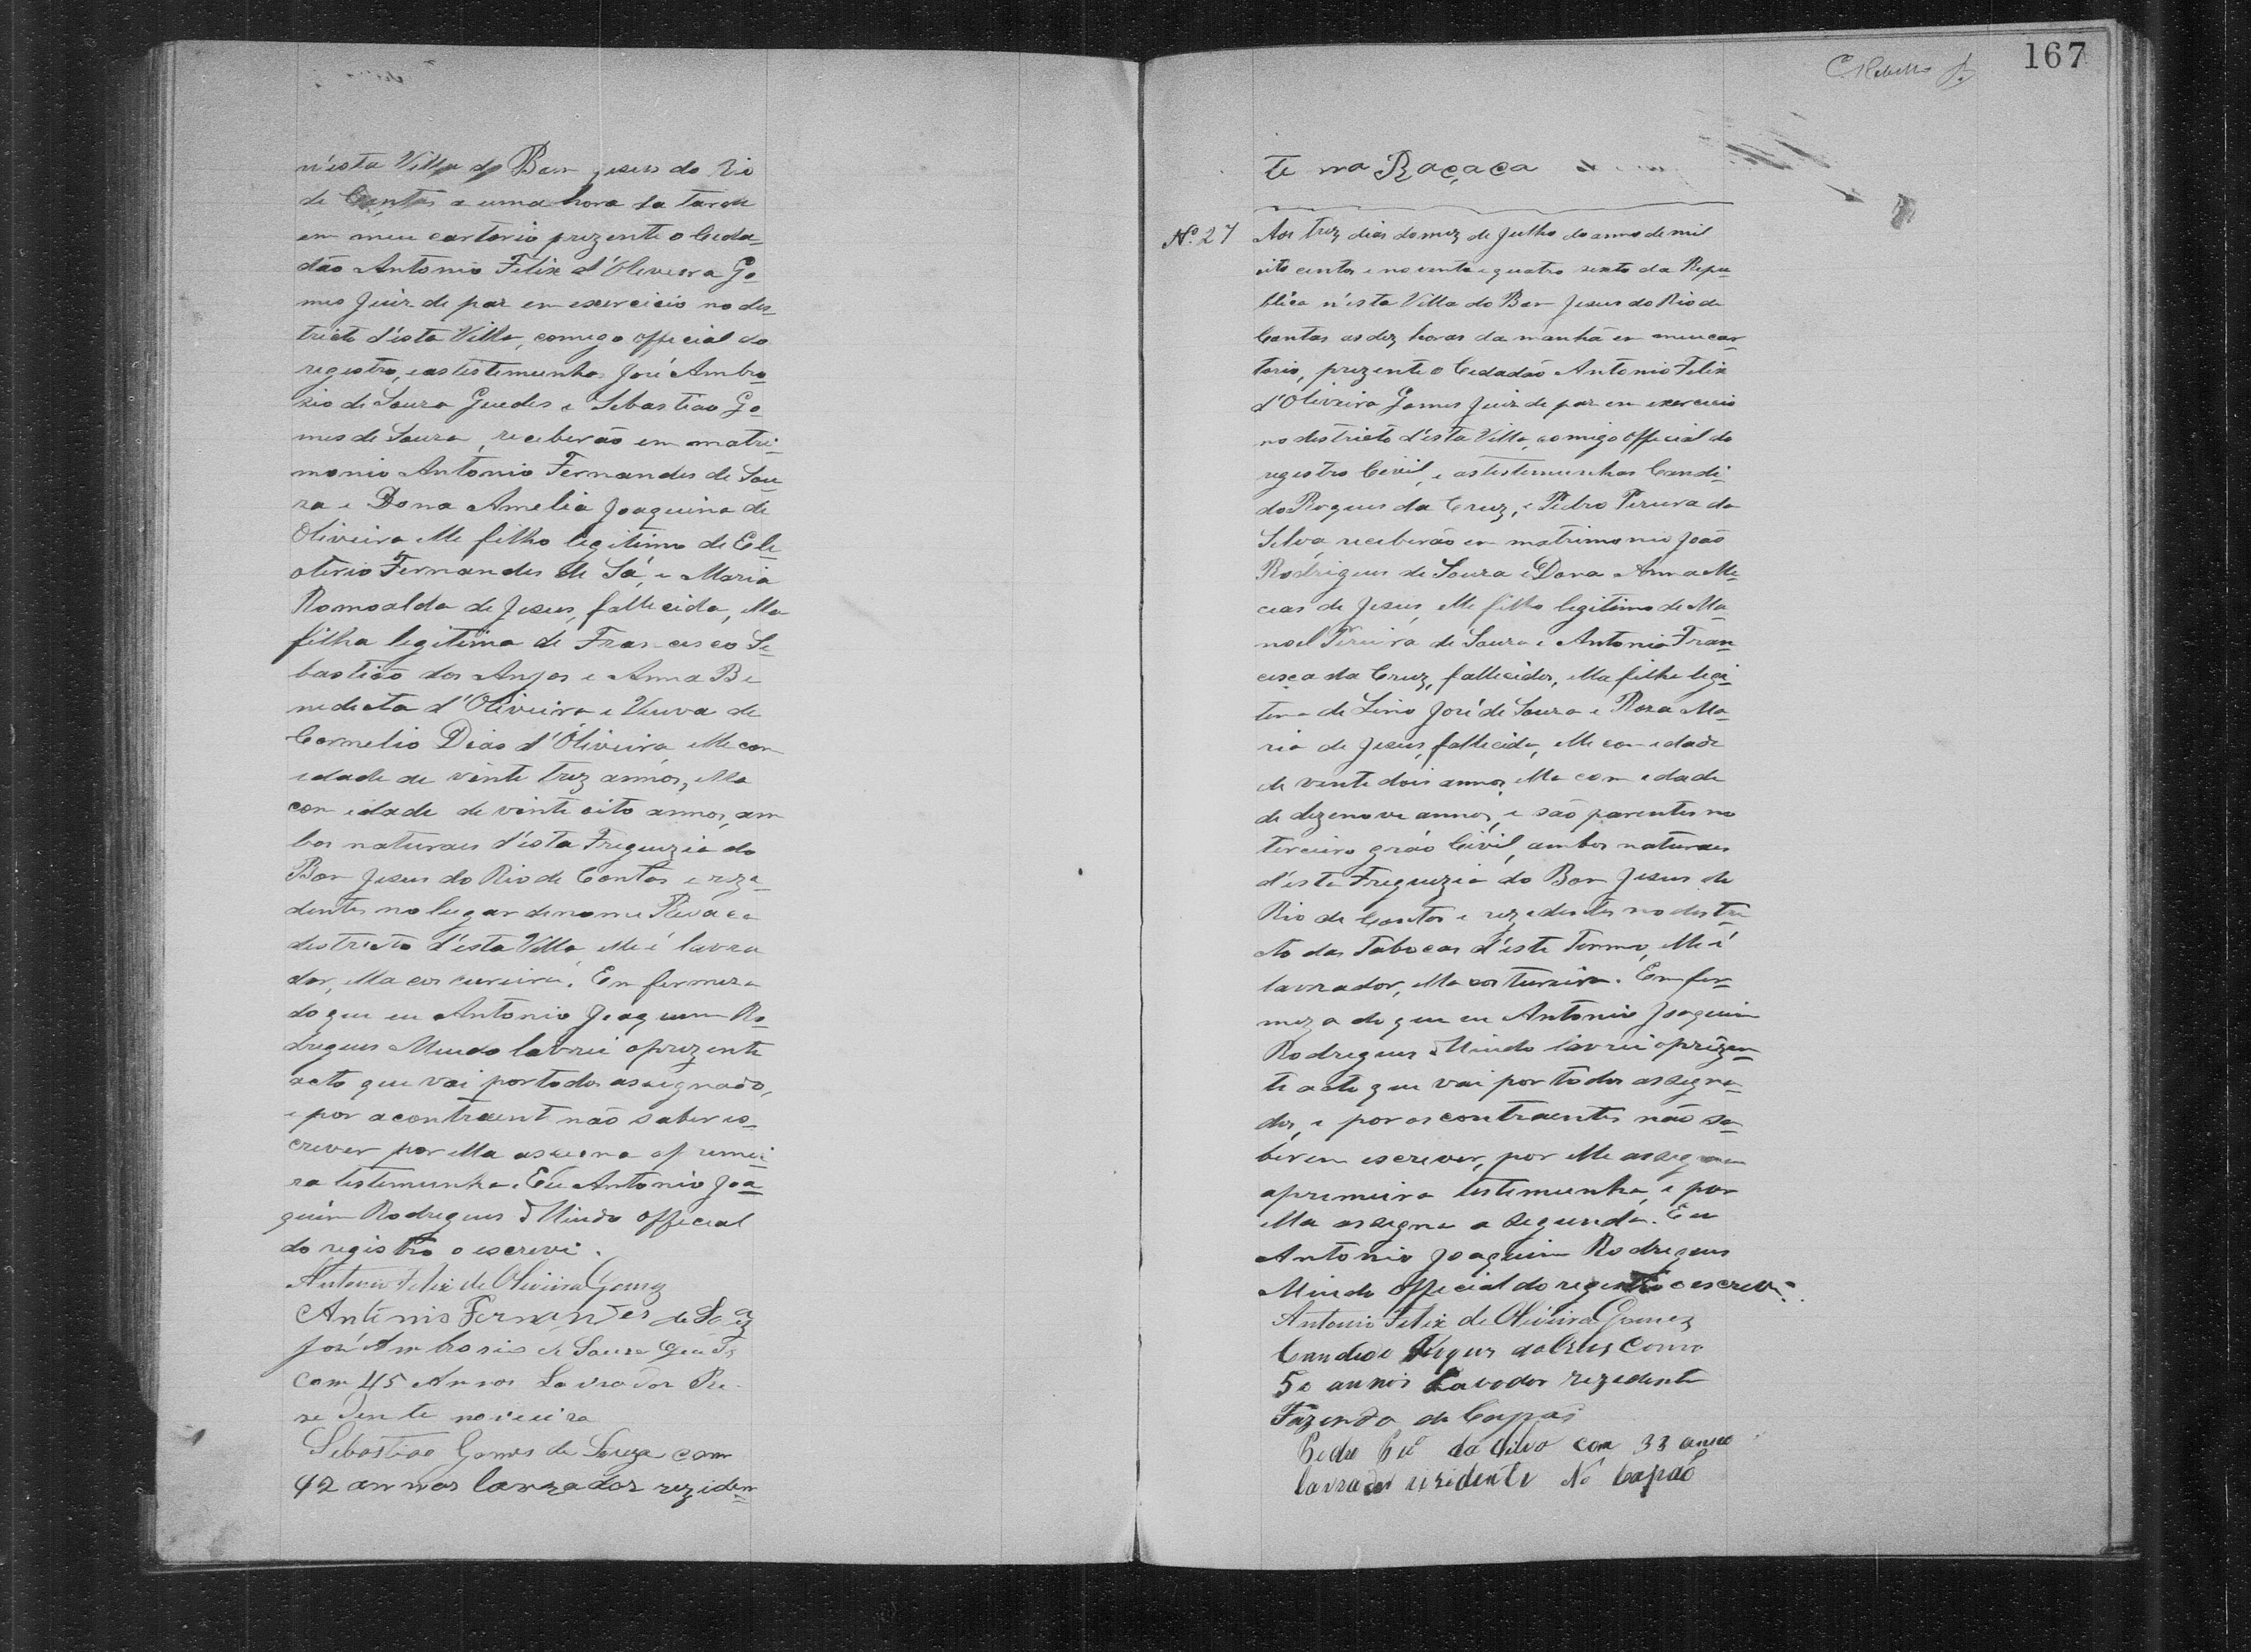 n'esta Villa do Bom Jesus do Rio
de Contas a uma hora da tarde
em meu cartorio prezente o Cida-
dão Antonio Felix d'Oliveira Go-
mes Juiz de paz em exercicio no des-
tricto d'esta Villa, comigo official do
registro, e as testemunhas José Ambro-
zio de Souza Guedes e Sebastião Go-
mes de Souza, receberão em matri-
monio Antonio Fernandes de Sou-
za e Dona Amelia Joaquina de
Oliveira elle filho legitimo de Ele-
oterio Fernandes de Sá, e Maria
Romoalda de Jesus, fallecida, ella
filha legitima de Francisco Se-
bastião dos Anjos e Anna Be-
nedicta d'Oliveira e Viuva de
Cornelio Dias d'Oliveira, elle com
idade de vinte trez annos, ella
com idade de vinte oito annos, am-
bos naturaes d'esta Freguezia do
Bom Jesus do Rio de Contas e reze-
dentes no lugar denome
destricto d'esta Villa, elle é lavra
dor, ella costureira. Em fermeza
do que eu Antonio Joaquim Ro-
dregues Mindo lavrei o prezente
acto que vai por todos assegnado,
e por a contraent não saber es-
crever por ella assegna a primei-
ra testemunha. Eu Antonio Joa-
quim Rodregues Mindo official
do registro o escrevi.
Antonio Felix de Oliveira Gomes
Antonio Fernandes de Souza
José Ambrosio de Souza Guedes
Com 45 Annos Lavrador Re-
zedente
Sebastião Gomes de Souza com
42 annos lavrador reziden-
C Rebello
167
te na Raçaca
Nº 27 Aos trez dias do mez de Julho do anno de mil
oito centos e noventa e quatro sexto da Repu-
blica n'esta Villa do Bom Jesus do Rio de
Contas as dez horas da manhã em meu car-
torio, prezente o Cidadão Antonio Felix
d'Oliveira Gomes Juiz de paz em exercicio
no destricto d'esta Villa, comigo official do
registro Civil, e as testemunhas Candi-
do Roques da Cruz, e Pedro Pereira da
Silva, receberão em matrimonio João
Rodrigues de Souza e Dona Anna Me-
cias de Jesus, elle filho legitimo de Ma-
noel Pereira de Souza e Antonia Fran-
cisca da Cruz, fallecidos, ella filha legi-
tima de Lino José de Souza e Roza Ma-
ria de Jesus, fallecida, elle com edade
de vinte dois annos, ella com edade
de dezenove annos, e são parentes no
terceiro gráo Civil, ambos naturaes
d'esta Freguezia do Bom Jesus do
Rio de Contas e rezedentes no destri-
cto das Tabocas d'este Termo, elle é
lavrador, ella costureira. Em fer-
meza do que eu Antonio Joaquim
Rodregues Mindo lavrei o prezen-
te acto que vai por todos assegna-
dos, e por os contraentes não sa-
berem escrever, por elle assegna
a primeira testemunha, e por
ella assegna a segunda. Eu
Antonio Joaquim Rodregues
Mindo official do registro o escrevi.
Antonio Felix de Oliveira Gomes
Candido Roques da Cruz Com
50 annos Lavador rezedente
Fazenda do Capão
Pedro Pra da Silva com 33 annos
lavrador residente No Capão